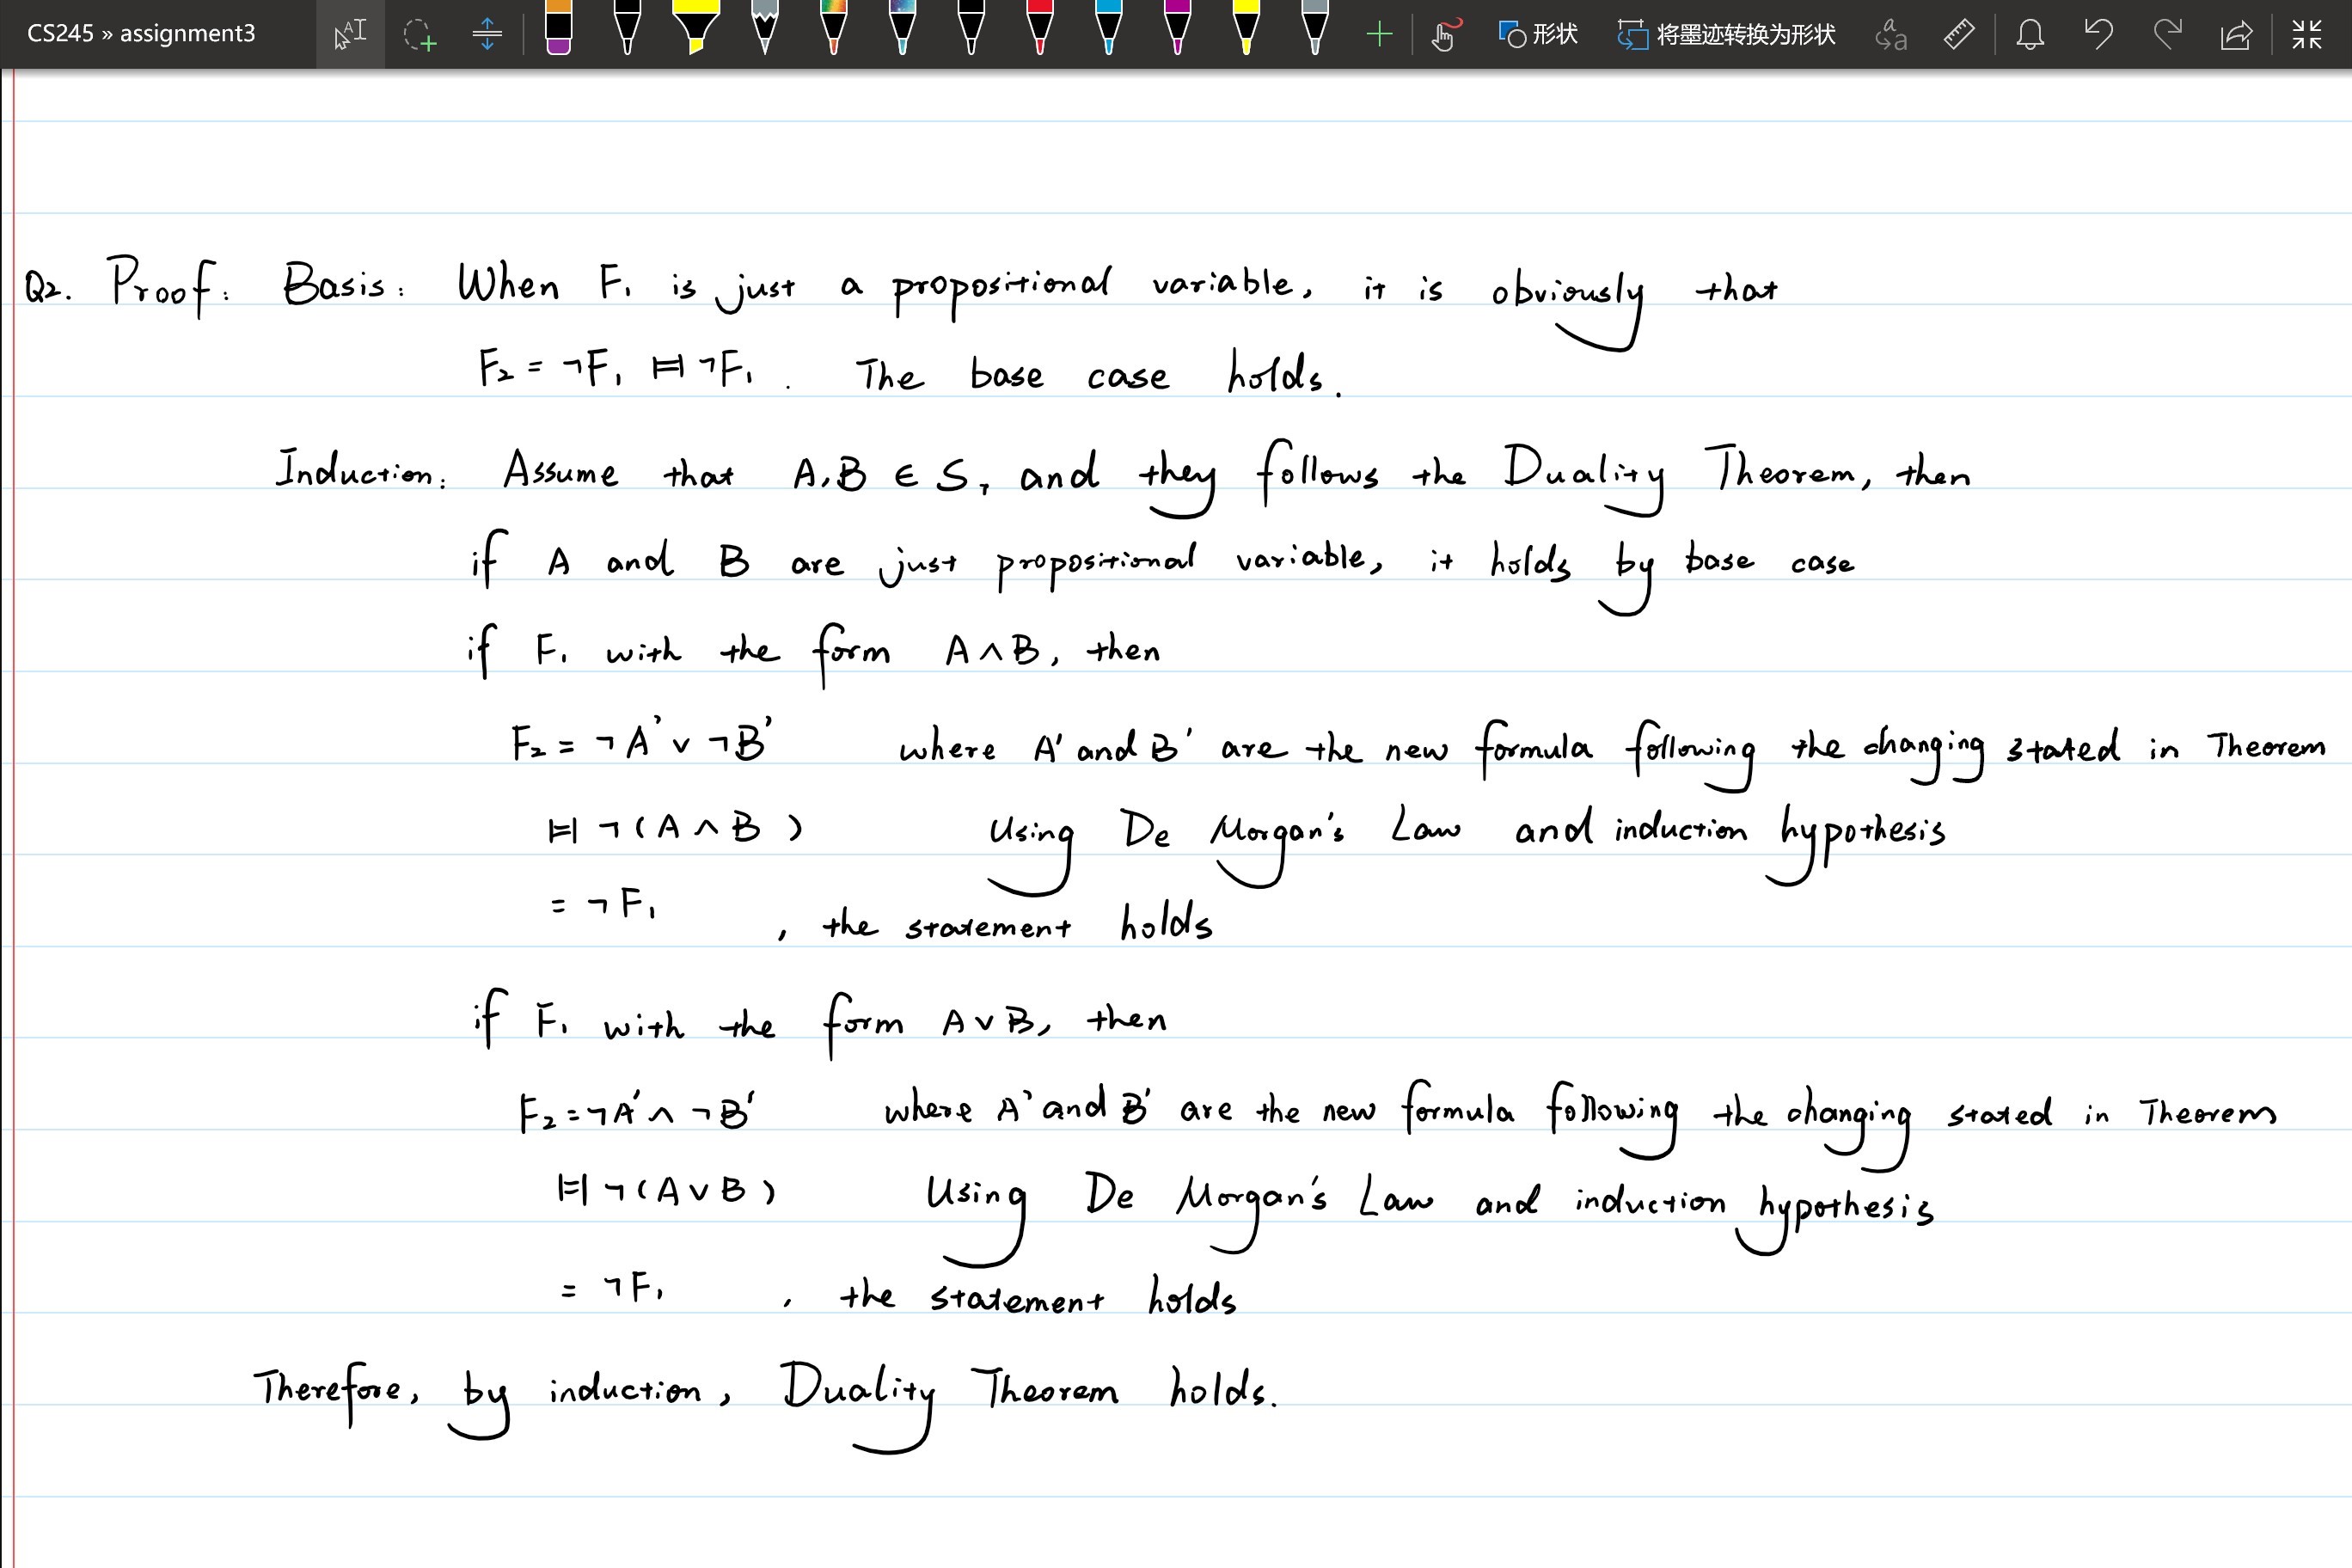 CS245 » assignment3
形状
将墨迹转换为形状
Q2. Proof: Basis: When F₁ is just a propositional variable, it is obviously that
F₂ = ¬F₁ ⊨⊣ ¬F₁. The base case holds.
Induction: Assume that A,B ∈ S, and they follows the Duality Theorem, then
if A and B are just propositional variable, it holds by base case
if F₁ with the form A∧B, then
F₂ = ¬A' ∨ ¬B' where A' and B' are the new formula following the changing stated in Theorem
⊨⊣ ¬(A∧B) Using De Morgan's Law and induction hypothesis
= ¬F₁, the statement holds
if F₁ with the form A∨B, then
F₂ = ¬A' ∧ ¬B' where A' and B' are the new formula following the changing stated in Theorem
⊨⊣ ¬(A∨B) Using De Morgan's Law and induction hypothesis
= ¬F₁, the statement holds
Therefore, by induction, Duality Theorem holds.